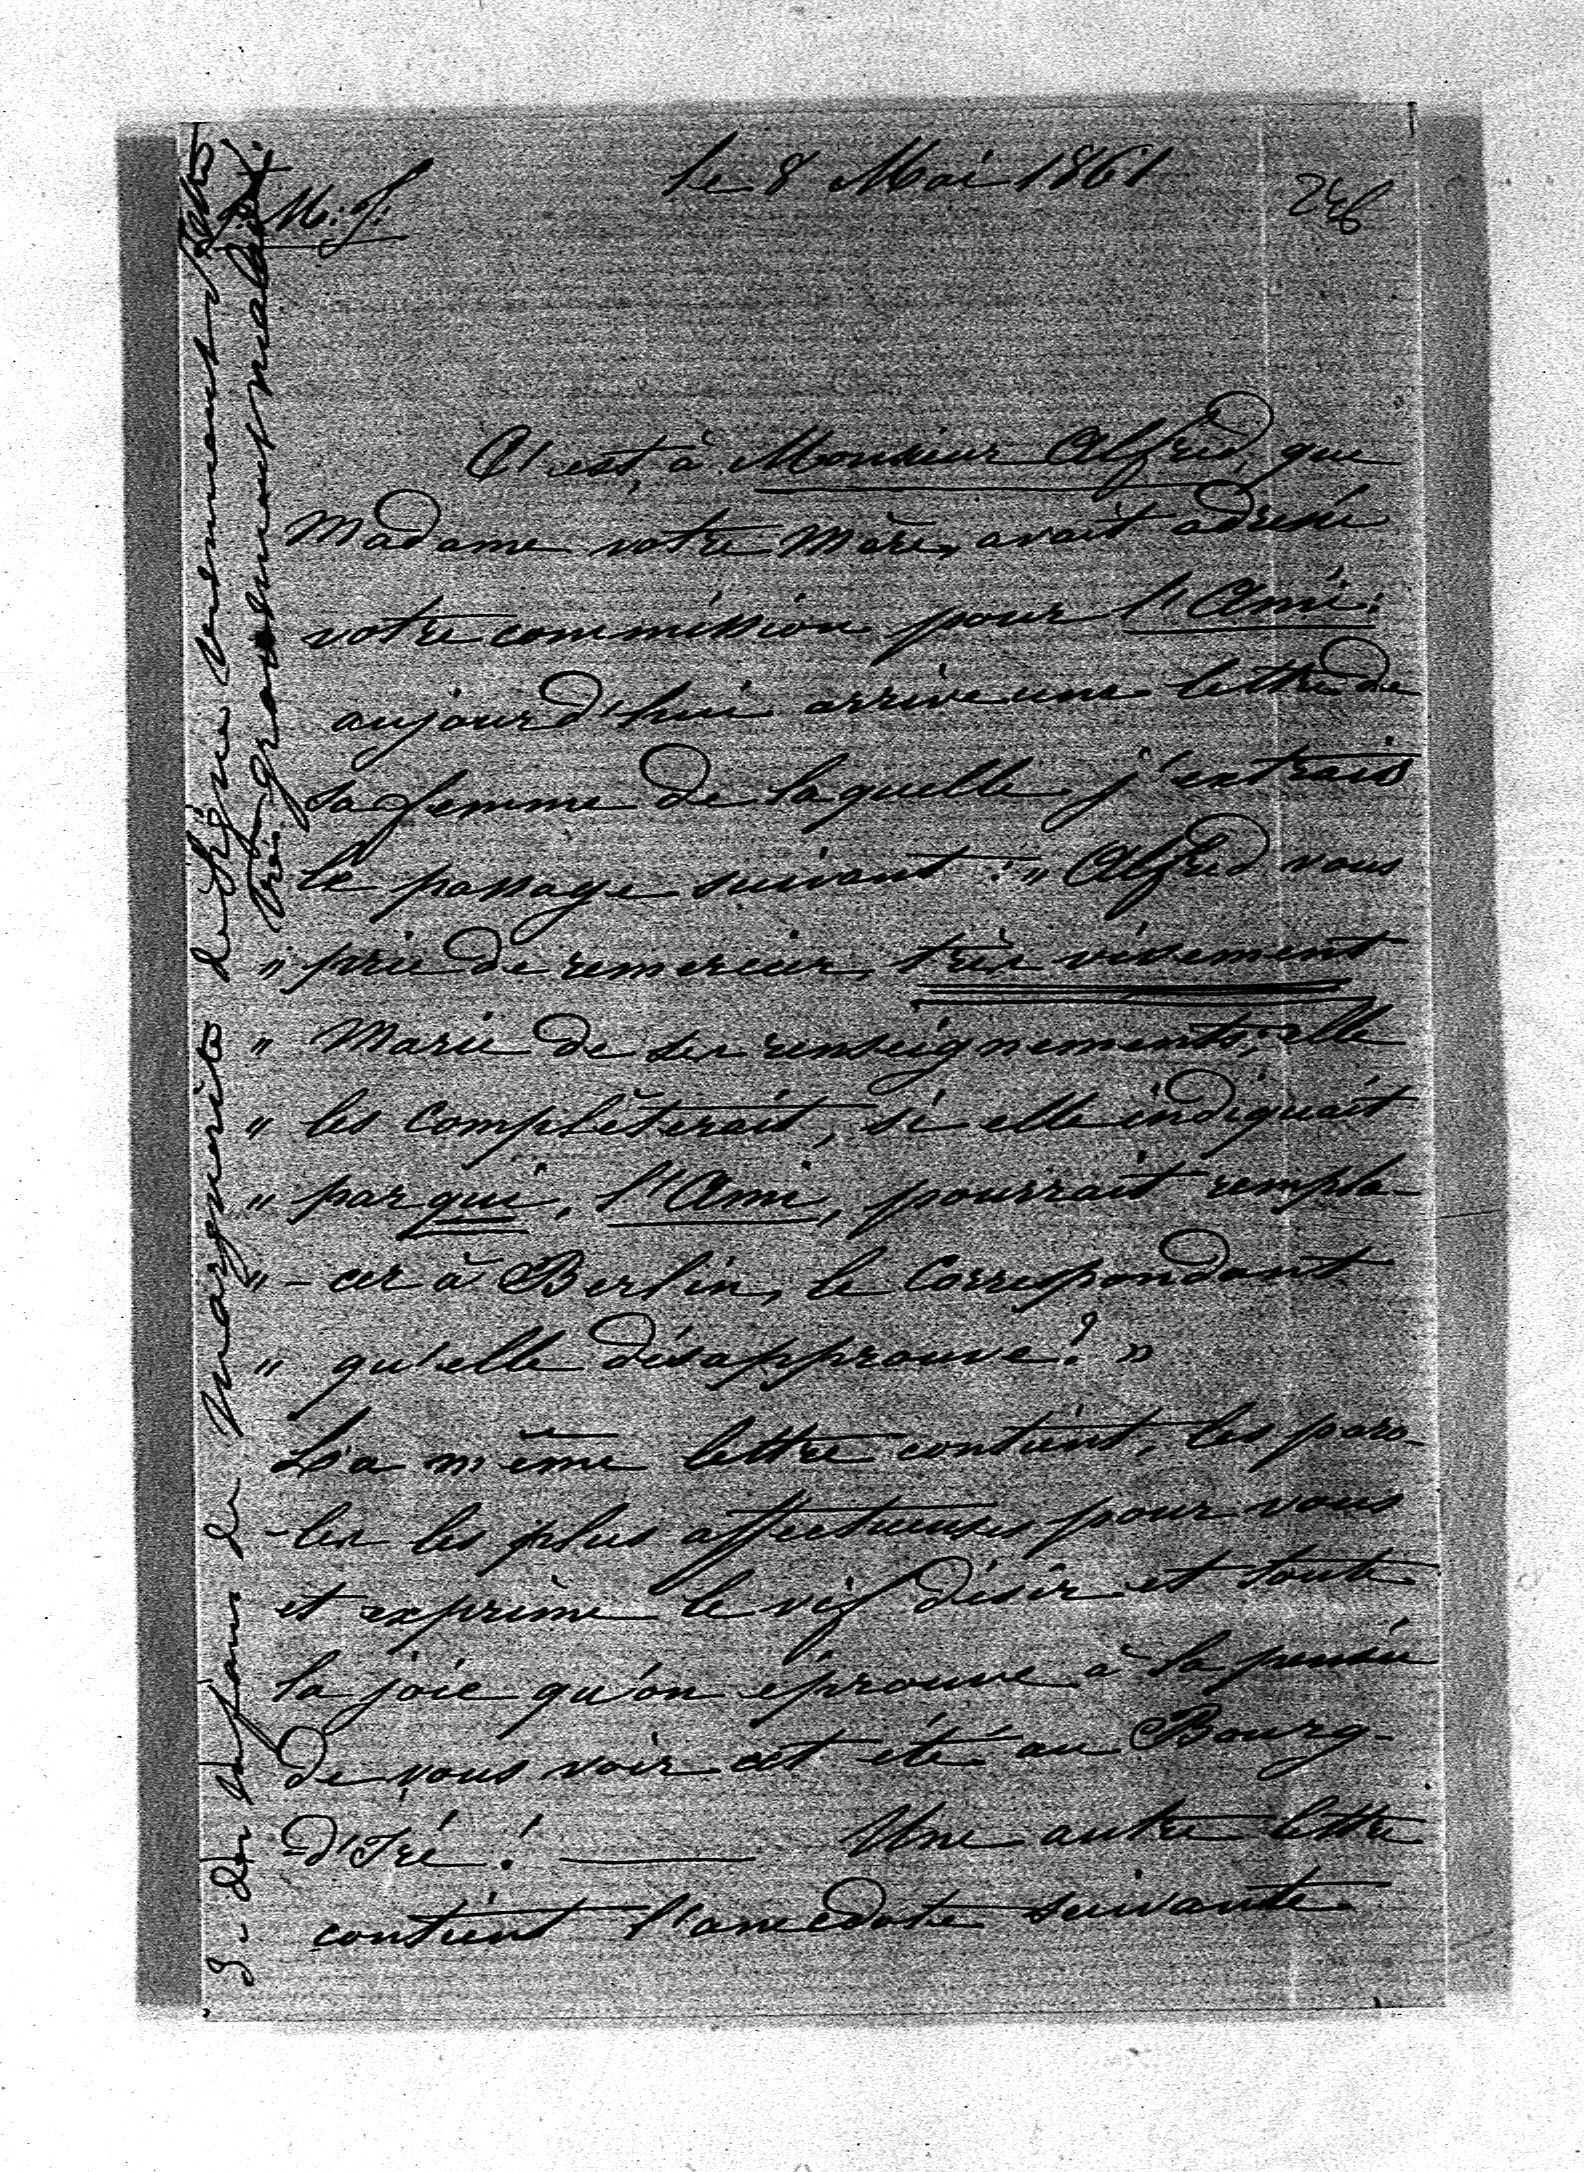 le 8 Mai 1861
246
J: M: J:
C'est à Monsieur Alfred, que
Madame votre Mère, avait adressé
votre commission pour l'Ami:
aujourd'hui arrive une lettre de
sa femme de laquelle j'extrais
le passage suivant: " Alfred vous
" prie de remercier, très vivement
" Marie de ses renseignements; elle
" les complèterait, si elle indiquait
" par qui, l'Ami, pourrait rempla-
" -cer à Berlin, le Correspondant
" qu'elle désapprouve? "
La même lettre contient, les paro-
-les les plus affectueuses pour vous
et exprime le vif désir et toute
la joie qu'on éprouve à la pensée
de vous voir cet été au Bourg-
-d'Iré! ——— Une autre lettre
contient l'anecdote suivante
des enfans de Marguerite de Ligne viennent
très gravement malades.